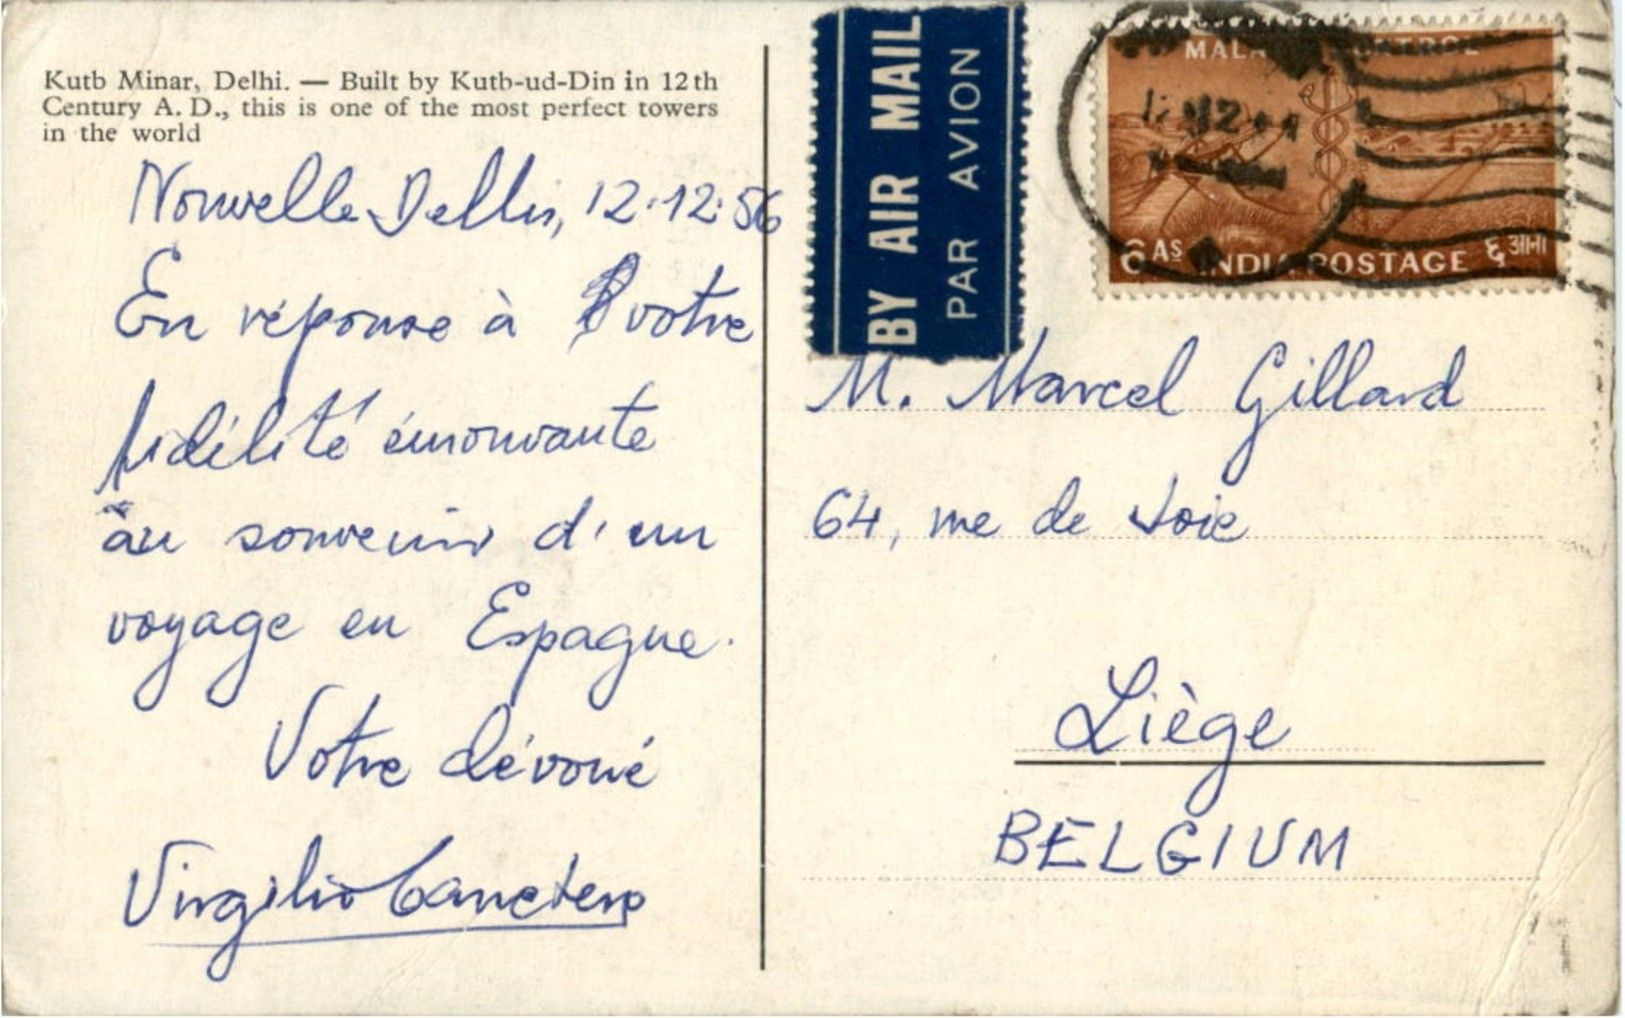 Kutb Minar, Delhi. — Built by Kutb-ud-Din in 12th
Century A. D., this is one of the most perfect towers
in the world
Nouvelle Delhi, 12.12.56
En réponse à votre
fidélité émouvante
au souvenir d'un
voyage en Espagne.
Votre dévoué
Virgilio
BY AIR MAIL
PAR AVION
6 AS INDIA POSTAGE ६ आना
M. Marcel Gillard
64, rue de
Liège
BELGIUM